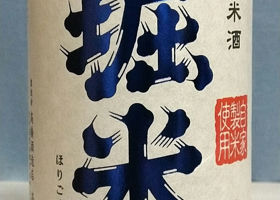 米酒
堀米
ほりご
自家
製米
使用